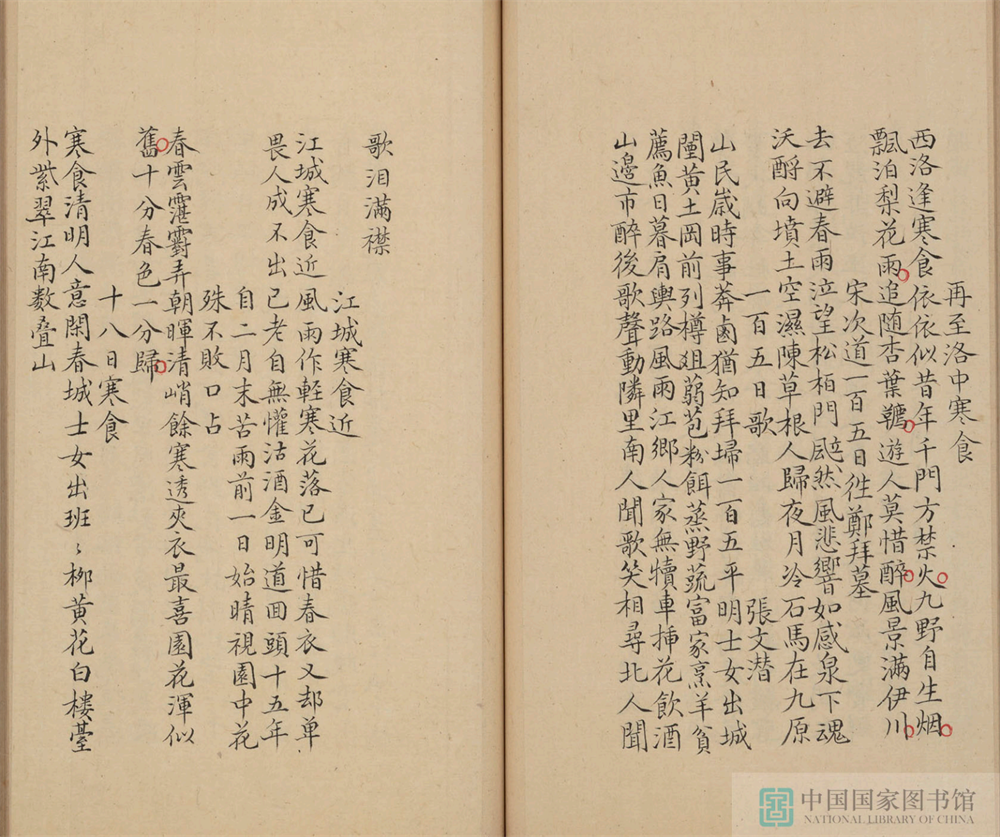 再至洛中寒食
西洛逢寒食依依似昔年千門方禁火九野自生烟
飄泊梨花雨追随杏葉韉遊人莫惜醉風景滿伊川
宋次道一百五日徃鄭拜墓
去不避春雨泣望松栢門颷然風悲響如感泉下魂
沃酹向墳土空濕陳草根人歸夜月冷石馬在九原
一百五日歌 張文潜
山民歳時事莽鹵猶知拜埽一百五平明士女出城
闉黄土岡前列樽爼蒻苞粉餌蒸野蔬富家烹羊貧
薦魚日暮肩輿路風雨江鄉人家無犢車挿花飲酒
山邊市醉後歌聲動隣里南人聞歌笑相尋北人聞
歌泪滿襟
江城寒食近
江城寒食近風雨作輕寒花落已可惜春衣又却单
畏人成不出已老自無懽沽酒金明道回頭十五年
自二月末苦雨前一日始晴視園中花
殊不敗口占
春雲霮䨴弄朝暉清峭餘寒透夾衣最喜園花渾似
舊十分春色一分歸
十八日寒食
寒食清明人意閑春城士女出班〻柳黄花白樓臺
外紫翠江南数叠山
中国国家图书馆
NATIONAL LIBRARY OF CHINA